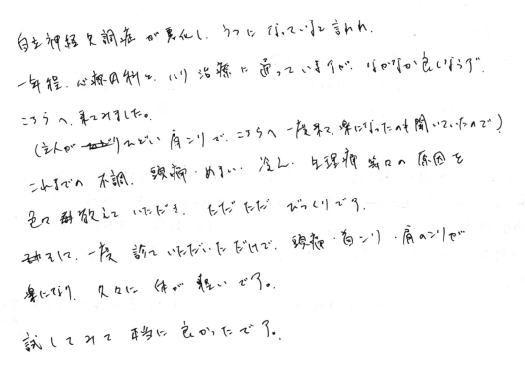 自立神経失調症が悪化し、うつになっていると言われ、
一年程、心療内科と、ハリ治療に通っていますが、なかなか良くならず、
こちらへ来てみました。
(主人がひどい肩こりで、こちらへ一度来て、楽になったのも聞いていたので)
これまでの不調、頭痛・めまい・冷え、生理痛等々の原因を
色々教えていただき、ただただびっくりです。
そして、一度診ていただいただけで、頭痛・首こり・肩のこりが
楽になり、久々に体が軽いです。
試してみて本当に良かったです。